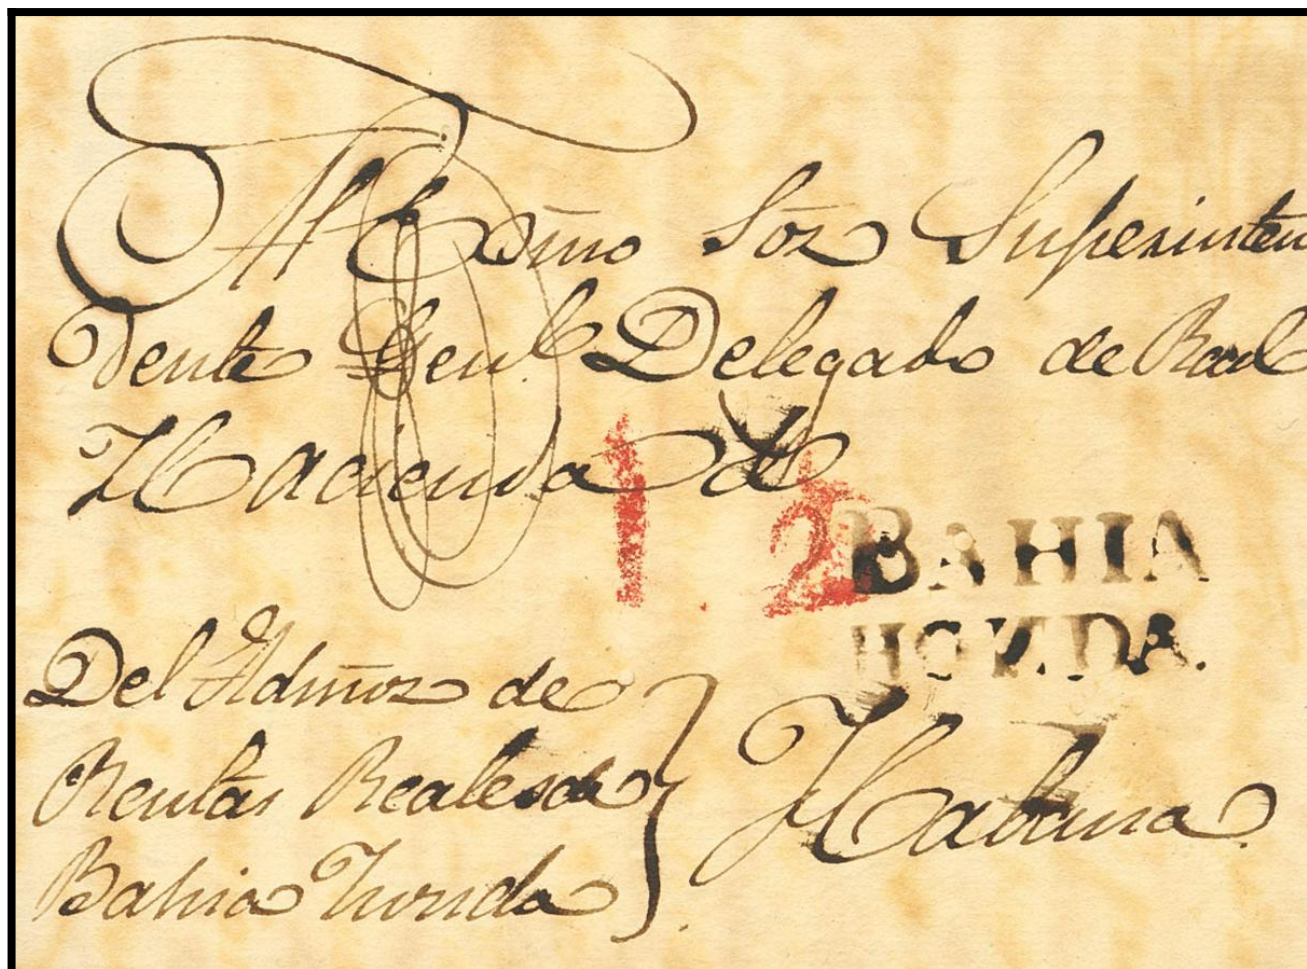 Al Exmo Sor Superinten
dente Genl. Delegado de Real
Hacienda de
1 2
BAHIA
HONDA.
Del Admor de
Rentas Reales de
Bahia Honda
Habana.